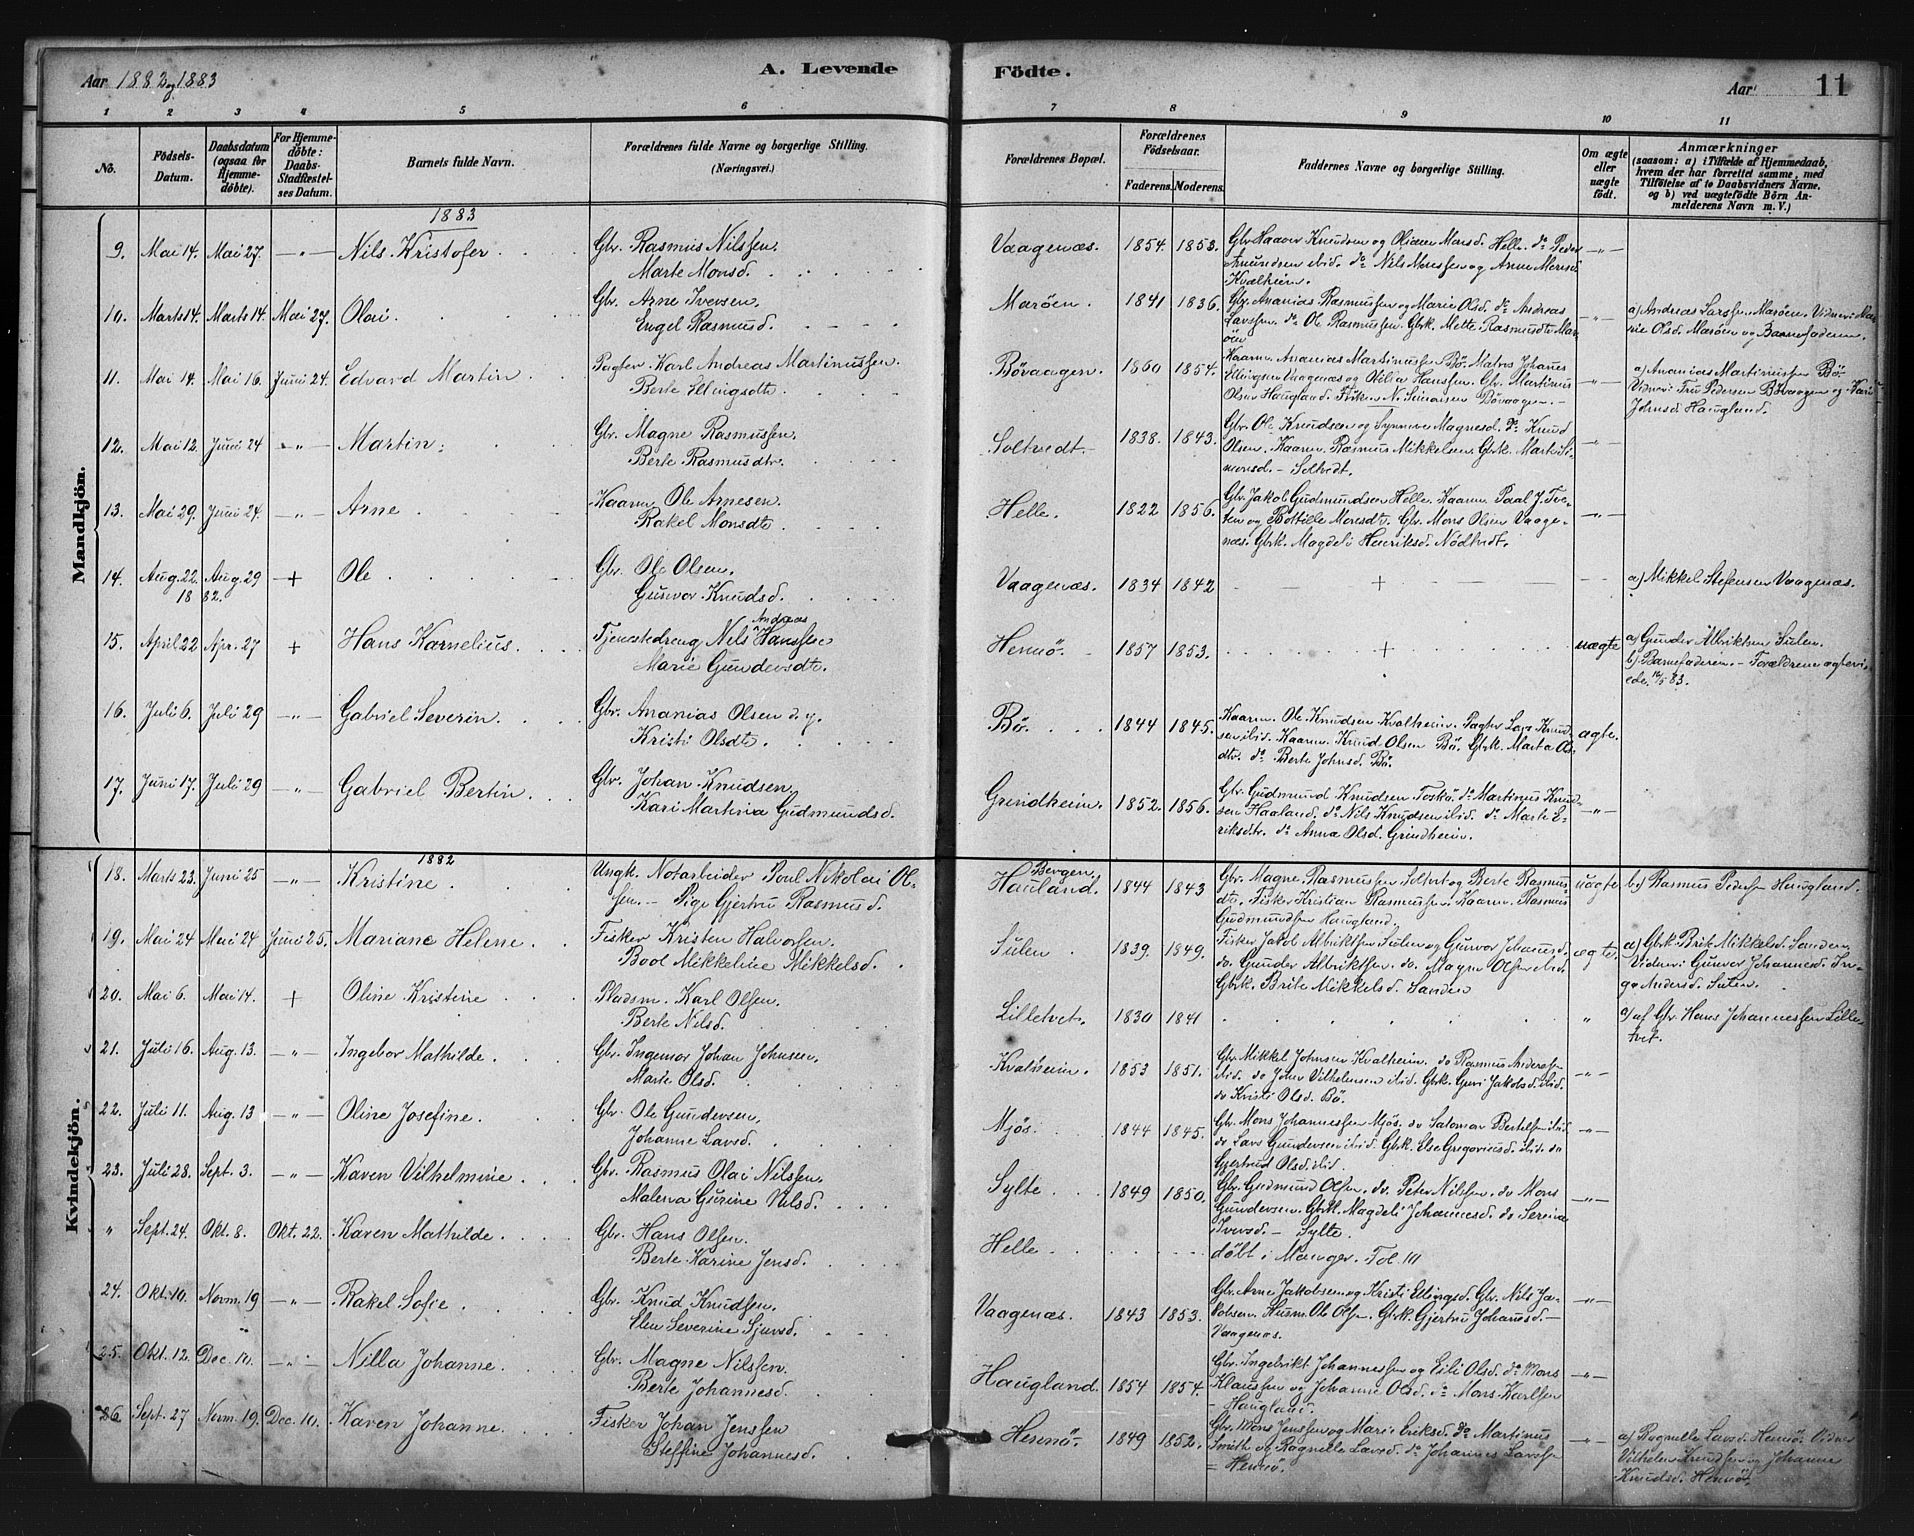 Aar 1882 og 1883
A. Levende
Födte.
Aar
11
1 2 3 4 5 6 7 8 9 10 11
No.
Födsels-Datum.
Daabsdatum (ogsaa for Hjemme-döbte).
For Hjemme-döbte: Daabs-Stadfæstel-ses Datum.
Barnets fulde Navn.
Forældrenes fulde Navne og borgerlige Stilling.
(Næringsvei.)
Forældrenes Bopæl.
Forældrenes Födselsaar.
Faderens. Moderens.
Faddernes Navne og borgerlige Stilling.
Om ægte eller uægte födt.
Anmærkninger
(saasom: a) i Tilfælde af Hjemmedaab, hvem der har forrettet samme, med Tilföielse af to Daabsvidners Navne, og b) ved uægtefödte Börn An-melderens Navn m. V.)
Mandkjön.
1883
9. Mai 14. Mai 27. —"— Nils Kristofer Gbr. Rasmus Nilssen.
Marte Monsd. Vaagenæs. 1854. 1853. Gbr. Haaver Knudsen og Oliane Monsd. Helle. do Peder
Amundsen ibid. do Nils Monssen og Anne
Kvalheim. —"—
10. Marts 14. Marts 14. Mai 27. Olai. Gbr. Arne Iversen.
Engel Rasmusd. Maröen. 1841 1836. Gbr. Ananias Rasmussen og Marie Olsd. do Andreas
Larssen. do Ole Rasmussen. Gbrk. Mette Rasmusdtr Mar-
öen —"— a) Andreas Larssen Maröen. Vidner: Ma-
rie Olsd. Maröen og Barnefaderen.
11. Mai 14. Mai 16. Juni 24. Edvard Martin Pagter Karl Andreas Martinussen.
Berte Ellingsdtr. Bövaagen. 1860 1854. Kaarm. Ananias Martinussen Bö. Matros Johanes
Ellingsen Vaagenæs og Otilia Hanssen. Gbr. Martinus
Olsen Haugland. Fisker N. Simonsen Bövaagen. —"— a) Ananias Martinussen Bö.
Vidner: Pedersen Bövaagen og Kari
Johnsd. Haugland.
12. Mai 12. Juni 24 —"— Martin. Gbr. Magne Rasmussen.
Berte Rasmusdtr. Soltvedt. 1838. 1843. Gbr. Ole Knudsen og Synneve Magnesd. do Knud
Olsen. Kaarm. Rasmus Mikkelsen. Gbrk. Marte Si-
monsd. — Soltvedt. —"—
13. Mai 29. Juni 24. —"— Arne Kaarm. Ole Arnesen.
Rakel Monsdtr. Helle. 1822 1856. Gbr. Jakob Gudmundsen Helle. Kaarm. Paal J. Tve-
ten og Bottille Monsdtr. Gbr. Mons Olsen Vaage-
næs. Gbrk. Magdeli Henriksd. Nödtvedt. —"—
14. Aug. 22. Aug. 29
1882. + Ole Gbr. Ole Olsen.
Gunvor Knudsd. Vaagenæs. 1834 1842 + a) Mikkel Stefensen Vaagenæs.
15. April 22 Apr. 27 + Hans Kornelius. Tjenestedreng Nils Andreas Hanssen
Marie Gundersdtr. Hennö. 1857 1853. + uægte a) Gunder Albriktsen Sulen.
b) Barnefaderen. — Forældrene ægtevi-
ede 83.
16. Juli 6. Juli 29 —"— Gabriel Severin. Gbr. Ananias Olsen d. y.
Kristi Olsdtr. Bö. 1844 1845. Kaarm. Ole Knudsen Kvalheim. Pagter Lars Knud-
sen ibid. Kaarm. Knud Olsen Bö. Gbrk. Marta
dtr. do Berte Johnsd. Bö. ægte.
17. Juni 17. Juli 29 —"— Gabriel Bertin. Gbr. Johan Knudsen.
Kari Martina Gudmundsd. Grindheim. 1852. 1856. Gbr. Gudmund Knudsen Toskö. do Martinus Knud-
sen Haaland. do Nils Knudsen ibid. do Marte E-
riksdtr. do Anna Olsd. Grindheim. —"—
Kvindekjön.
1882
18. Marts 23. Juni 25 —"— Kristine. Ungk. Notarbeider Poul Nikolai Ol-
sen. — Pige Gjertru Rasmusd. Bergen.
Hauland. 1844 1843 Gbr. Magne Rasmussen Soltvet og Berte Rasmus-
dtr. Fisker Kristian Rasmussen. Kaarm. Rasmus
Gudmundsen Haugland. uægte b) Rasmus Pedersen Haugland.
19. Mai 24 Mai 24 Juni 25. Mariane Helene. Fisker Kristen Halvorsen.
Bool Mikkeline Mikkelsd. Sulen 1839. 1849. Fisker Jakob Albriktsen Sulen og Gunvor Johannesd.
do. Gunder Albriktsen. do. Magne Olsen ibid.
Gbrk. Brite Mikkelsd. Sanden ægte. a) Gbrk. Brite Mikkelsd. Sanden.
Vidner: Gunvor Johannesd. In-
ga Andersd. Sulen.
20. Mai 6. Mai 14. + Oline Kristine Pladsm. Karl Olsen.
Berte Nilsd. Lilletvet. 1830 1841 " a) af Gbr. Hans Johannessen Lille-
tvet.
21. Juli 16. Aug. 13. —"— Ingebor Mathilde. Gbr. Ingemor Johan Johnsen.
Marte Olsd. Kvalheim. 1853 1851. Gbr. Mikkel Johnsen Kvalheim. do Rasmus Anderssen
ibid. do John Vilhelmsen ibid. Gbrk. Guri Jakobsd. ibid.
do Kristi Olsd. Bö. —"—
22. Juli 11. Aug. 13 —"— Oline Josefine. Gbr. Ole Gundersen,
Johanne Larsd. Mjös. 1844 1845. Gbr. Mons Johannessen Mjös. do Salomon Bertelsen ibid.
do Lars Gundersen ibid. Gbrk. Else Gregoriusd. ibid. do
Gjertrud Olsd. ibid. —"—
23. Juli 28. Sept. 3. —"— Karen Vilhelmine. Gbr. Rasmus Olai Nilssen.
Malena Gurine Nilsd. Sylte 1849 1850. Gbr. Gudmund Olsen. do. Peter Nilssen. do Mons
Gundersen. Gbrk. Magdeli Johannesd. do Serine
Iversd. — Sylte. —"—
" Sept. 24. Okt. 8. Okt. 22. Karen Mathilde. Gbr. Hans Olsen.
Berte Karine Jensd. Helle döbt i Manger. Fol. 111
24. Okt. 10. Novm. 19 —"— Rakel Sofie Gbr. Knud Knudsen.
Elen Severine Sjursd. Vaagenæs. 1843 1853. Gbr. Arne Jakobsen og Kristi Ellingsd. Gbr. Nils Ja-
kobsen. Husm. Ole Olsen. Gbrk. Gjertru Johansd. —
Vaagenæs. —"—
25. Okt. 12 Dec. 10. —"— Nilla Johanne. Gbr. Magne Nilssen.
Berte Johannesd. Haugland. 1854 1854. Gbr. Ingebrikt Johannessen og Eili Olsd. do Mons
Klaussen og Johanne Olsd. do Mons Karlsen
— Haugland. —"—
26. Sept. 27 Novm. 19. Dec. 10. Karen Johanne. Fisker Johan Jenssen
Steffine Johannesd. Hennö. 1849 1852. Gbr. Mons Jenssen og Mari Eriksd. do Martinus
Smith og Ragnelle Larsd. do Johannes Larssen
— Hennö. —"— a) Ragnelle Larsd. Hennö. Vidner
Vilhelm Knudsen og Johanne
Knudsd. Hennö.